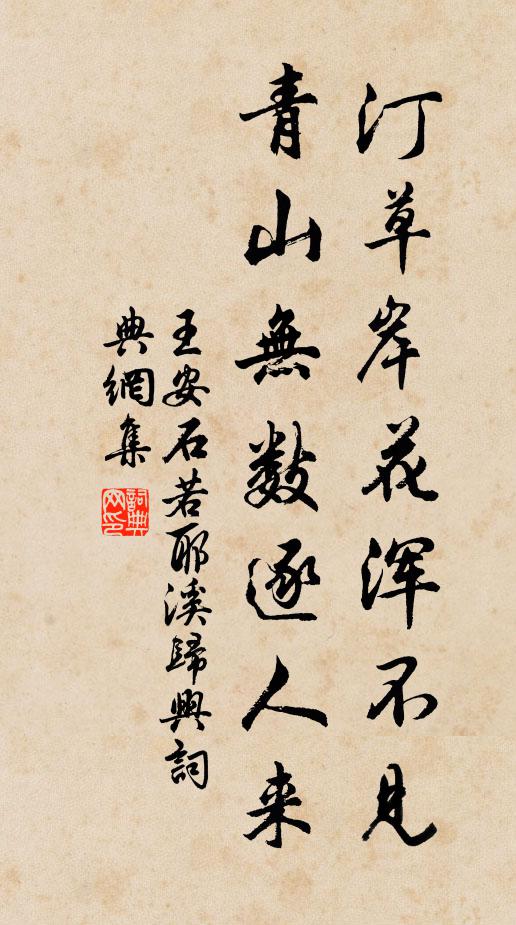 汀草岸花浑不见
青山無数逐人来
王安石若耶溪歸興詞
典網集
詞典
网印